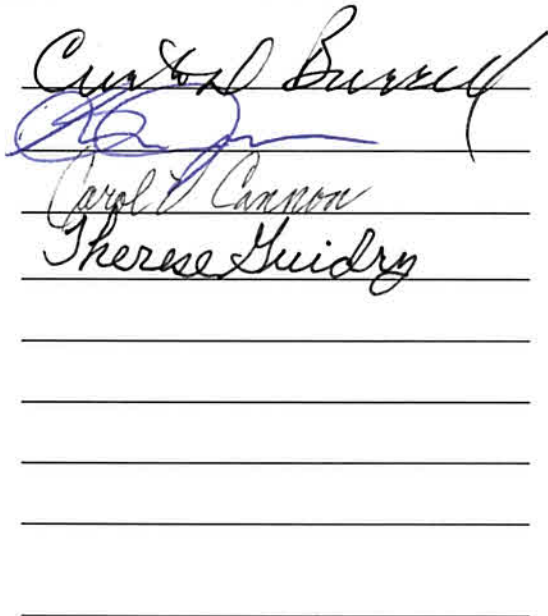 Curton D Burrell
Carol D Cannon
Therese Guidry